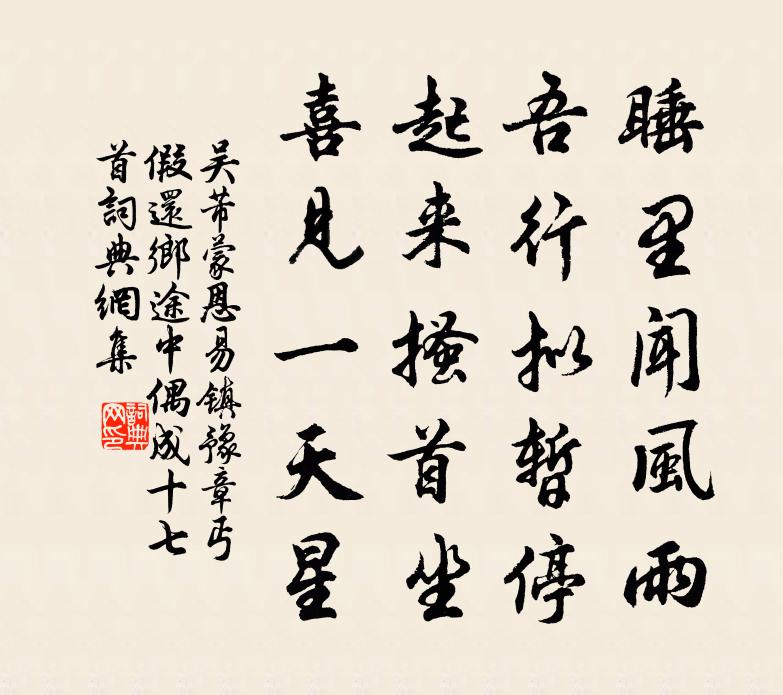 睡里闻風雨
吾行拟暫停
起来搔首坐
喜見一天星
吴芾蒙恩易鎮豫章丐
假還鄉途中偶成十七
首詞典網集
詞典网印